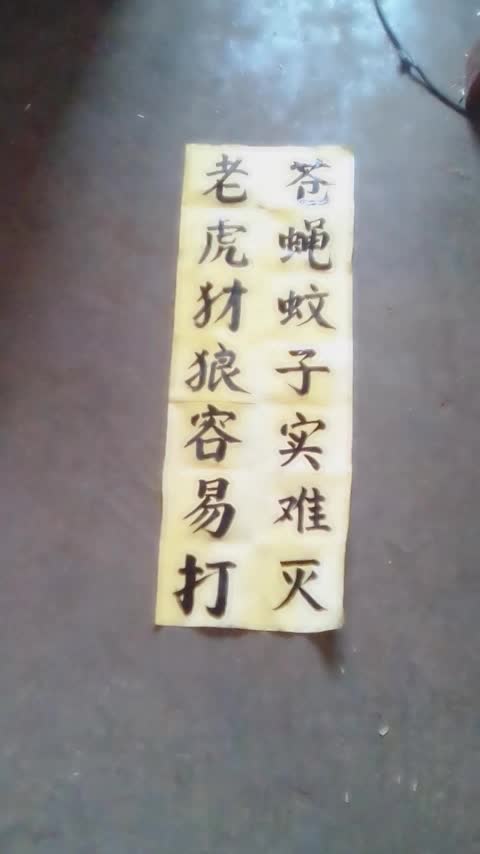 苍蝇蚊子实难灭
老虎犲狼容易打